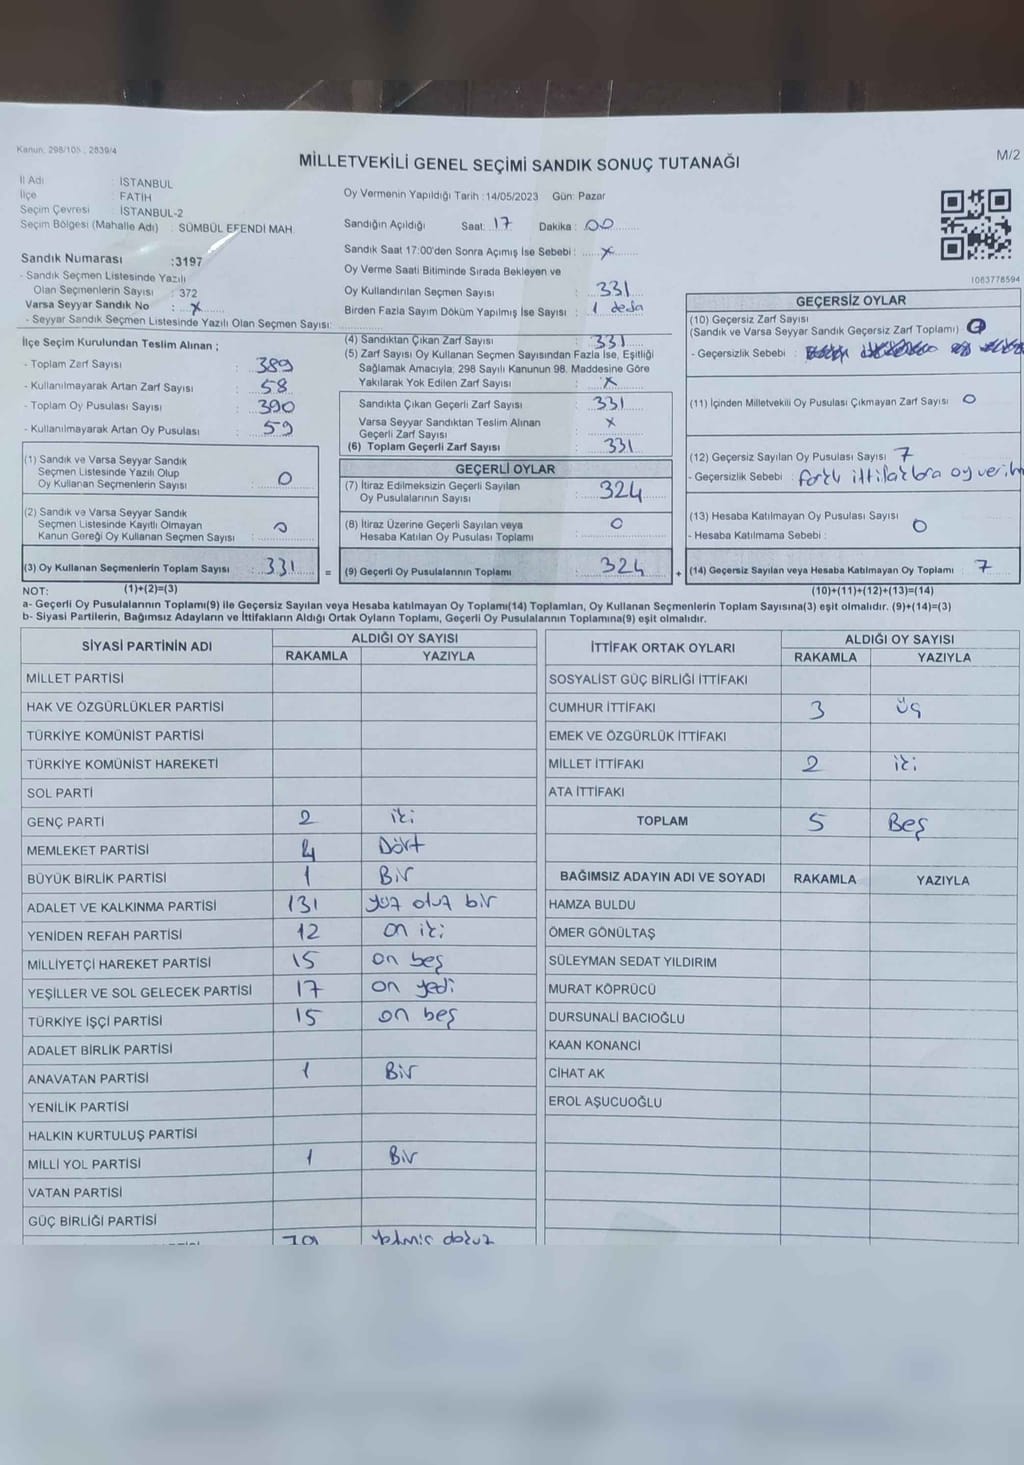 Kanun: 298/105 , 2839/4
MİLLETVEKİLİ GENEL SEÇİMİ SANDIK SONUÇ TUTANAĞI
M/2
İl Adı : İSTANBUL
İlçe : FATİH
Seçim Çevresi : İSTANBUL-2
Seçim Bölgesi (Mahalle Adı) : SÜMBÜL EFENDİ MAH.
Oy Vermenin Yapıldığı Tarih :14/05/2023 Gün: Pazar
Sandığın Açıldığı Saat: 17 Dakika : 00
Sandık Saat 17:00'den Sonra Açımış İse Sebebi : x
Oy Verme Saati Bitiminde Sırada Bekleyen ve
Oy Kullandırılan Seçmen Sayısı : 331
Birden Fazla Sayım Döküm Yapılmış İse Sayısı : 1 defa
1063778594
Sandık Numarası :3197
- Sandık Seçmen Listesinde Yazılı
Olan Seçmenlerin Sayısı : 372
Varsa Seyyar Sandık No : x
- Seyyar Sandık Seçmen Listesinde Yazılı Olan Seçmen Sayısı:
İlçe Seçim Kurulundan Teslim Alınan ;
- Toplam Zarf Sayısı : 389
- Kullanılmayarak Artan Zarf Sayısı : 58
- Toplam Oy Pusulası Sayısı : 390
- Kullanılmayarak Artan Oy Pusulası : 59
(1) Sandık ve Varsa Seyyar Sandık
Seçmen Listesinde Yazılı Olup
Oy Kullanan Seçmenlerin Sayısı : 0
(2) Sandık ve Varsa Seyyar Sandık
Seçmen Listesinde Kayıtlı Olmayan
Kanun Gereği Oy Kullanan Seçmen Sayısı : 0
(3) Oy Kullanan Seçmenlerin Toplam Sayısı : 331 =
(4) Sandıktan Çıkan Zarf Sayısı : 331
(5) Zarf Sayısı Oy Kullanan Seçmen Sayısından Fazla İse, Eşitliği
Sağlamak Amacıyla; 298 Sayılı Kanunun 98. Maddesine Göre
Yakılarak Yok Edilen Zarf Sayısı : x
Sandıkta Çıkan Geçerli Zarf Sayısı : 331
Varsa Seyyar Sandıktan Teslim Alınan
Geçerli Zarf Sayısı : x
(6) Toplam Geçerli Zarf Sayısı : 331
GEÇERLİ OYLAR
(7) İtiraz Edilmeksizin Geçerli Sayılan
Oy Pusulalarının Sayısı : 324
(8) İtiraz Üzerine Geçerli Sayılan veya
Hesaba Katılan Oy Pusulası Toplamı : 0
(9) Geçerli Oy Pusulalarının Toplamı : 324 +
GEÇERSİZ OYLAR
(10) Geçersiz Zarf Sayısı
(Sandık ve Varsa Seyyar Sandık Geçersiz Zarf Toplamı)
- Geçersizlik Sebebi :
(11) İçinden Milletvekili Oy Pusulası Çıkmayan Zarf Sayısı : 0
(12) Geçersiz Sayılan Oy Pusulası Sayısı : 7
- Geçersizlik Sebebi : oy
(13) Hesaba Katılmayan Oy Pusulası Sayısı : 0
- Hesaba Katılmama Sebebi :
(14) Geçersiz Sayılan veya Hesaba Katılmayan Oy Toplamı : 7
NOT: (1)+(2)=(3) (10)+(11)+(12)+(13)=(14)
a- Geçerli Oy Pusulalarının Toplamı(9) ile Geçersiz Sayılan veya Hesaba katılmayan Oy Toplamı(14) Toplamları, Oy Kullanan Seçmenlerin Toplam Sayısına(3) eşit olmalıdır. (9)+(14)=(3)
b- Siyasi Partilerin, Bağımsız Adayların ve İttifakların Aldığı Ortak Oyların Toplamı, Geçerli Oy Pusulalarının Toplamına(9) eşit olmalıdır.
SİYASİ PARTİNİN ADI ALDIĞI OY SAYISI
RAKAMLA YAZIYLA
MİLLET PARTİSİ
HAK VE ÖZGÜRLÜKLER PARTİSİ
TÜRKİYE KOMÜNİST PARTİSİ
TÜRKİYE KOMÜNİST HAREKETİ
SOL PARTİ
GENÇ PARTİ 2 iki
MEMLEKET PARTİSİ 4 Dört
BÜYÜK BİRLİK PARTİSİ 1 Bir
ADALET VE KALKINMA PARTİSİ 131 yüz otuz bir
YENİDEN REFAH PARTİSİ 12 on iki
MİLLİYETÇİ HAREKET PARTİSİ 15 on beş
YEŞİLLER VE SOL GELECEK PARTİSİ 17 on yedi
TÜRKİYE İŞÇİ PARTİSİ 15 on beş
ADALET BİRLİK PARTİSİ
ANAVATAN PARTİSİ 1 Bir
YENİLİK PARTİSİ
HALKIN KURTULUŞ PARTİSİ
MİLLİ YOL PARTİSİ 1 Bir
VATAN PARTİSİ
GÜÇ BİRLİĞİ PARTİSİ
79 yetmiş dokuz
İTTİFAK ORTAK OYLARI ALDIĞI OY SAYISI
RAKAMLA YAZIYLA
SOSYALİST GÜÇ BİRLİĞİ İTTİFAKI
CUMHUR İTTİFAKI 3 üç
EMEK VE ÖZGÜRLÜK İTTİFAKI
MİLLET İTTİFAKI 2 iki
ATA İTTİFAKI
TOPLAM 5 Beş
BAĞIMSIZ ADAYIN ADI VE SOYADI RAKAMLA YAZIYLA
HAMZA BULDU
ÖMER GÖNÜLTAŞ
SÜLEYMAN SEDAT YILDIRIM
MURAT KÖPRÜCÜ
DURSUNALİ BACIOĞLU
KAAN KONANCİ
CİHAT AK
EROL AŞUCUOĞLU